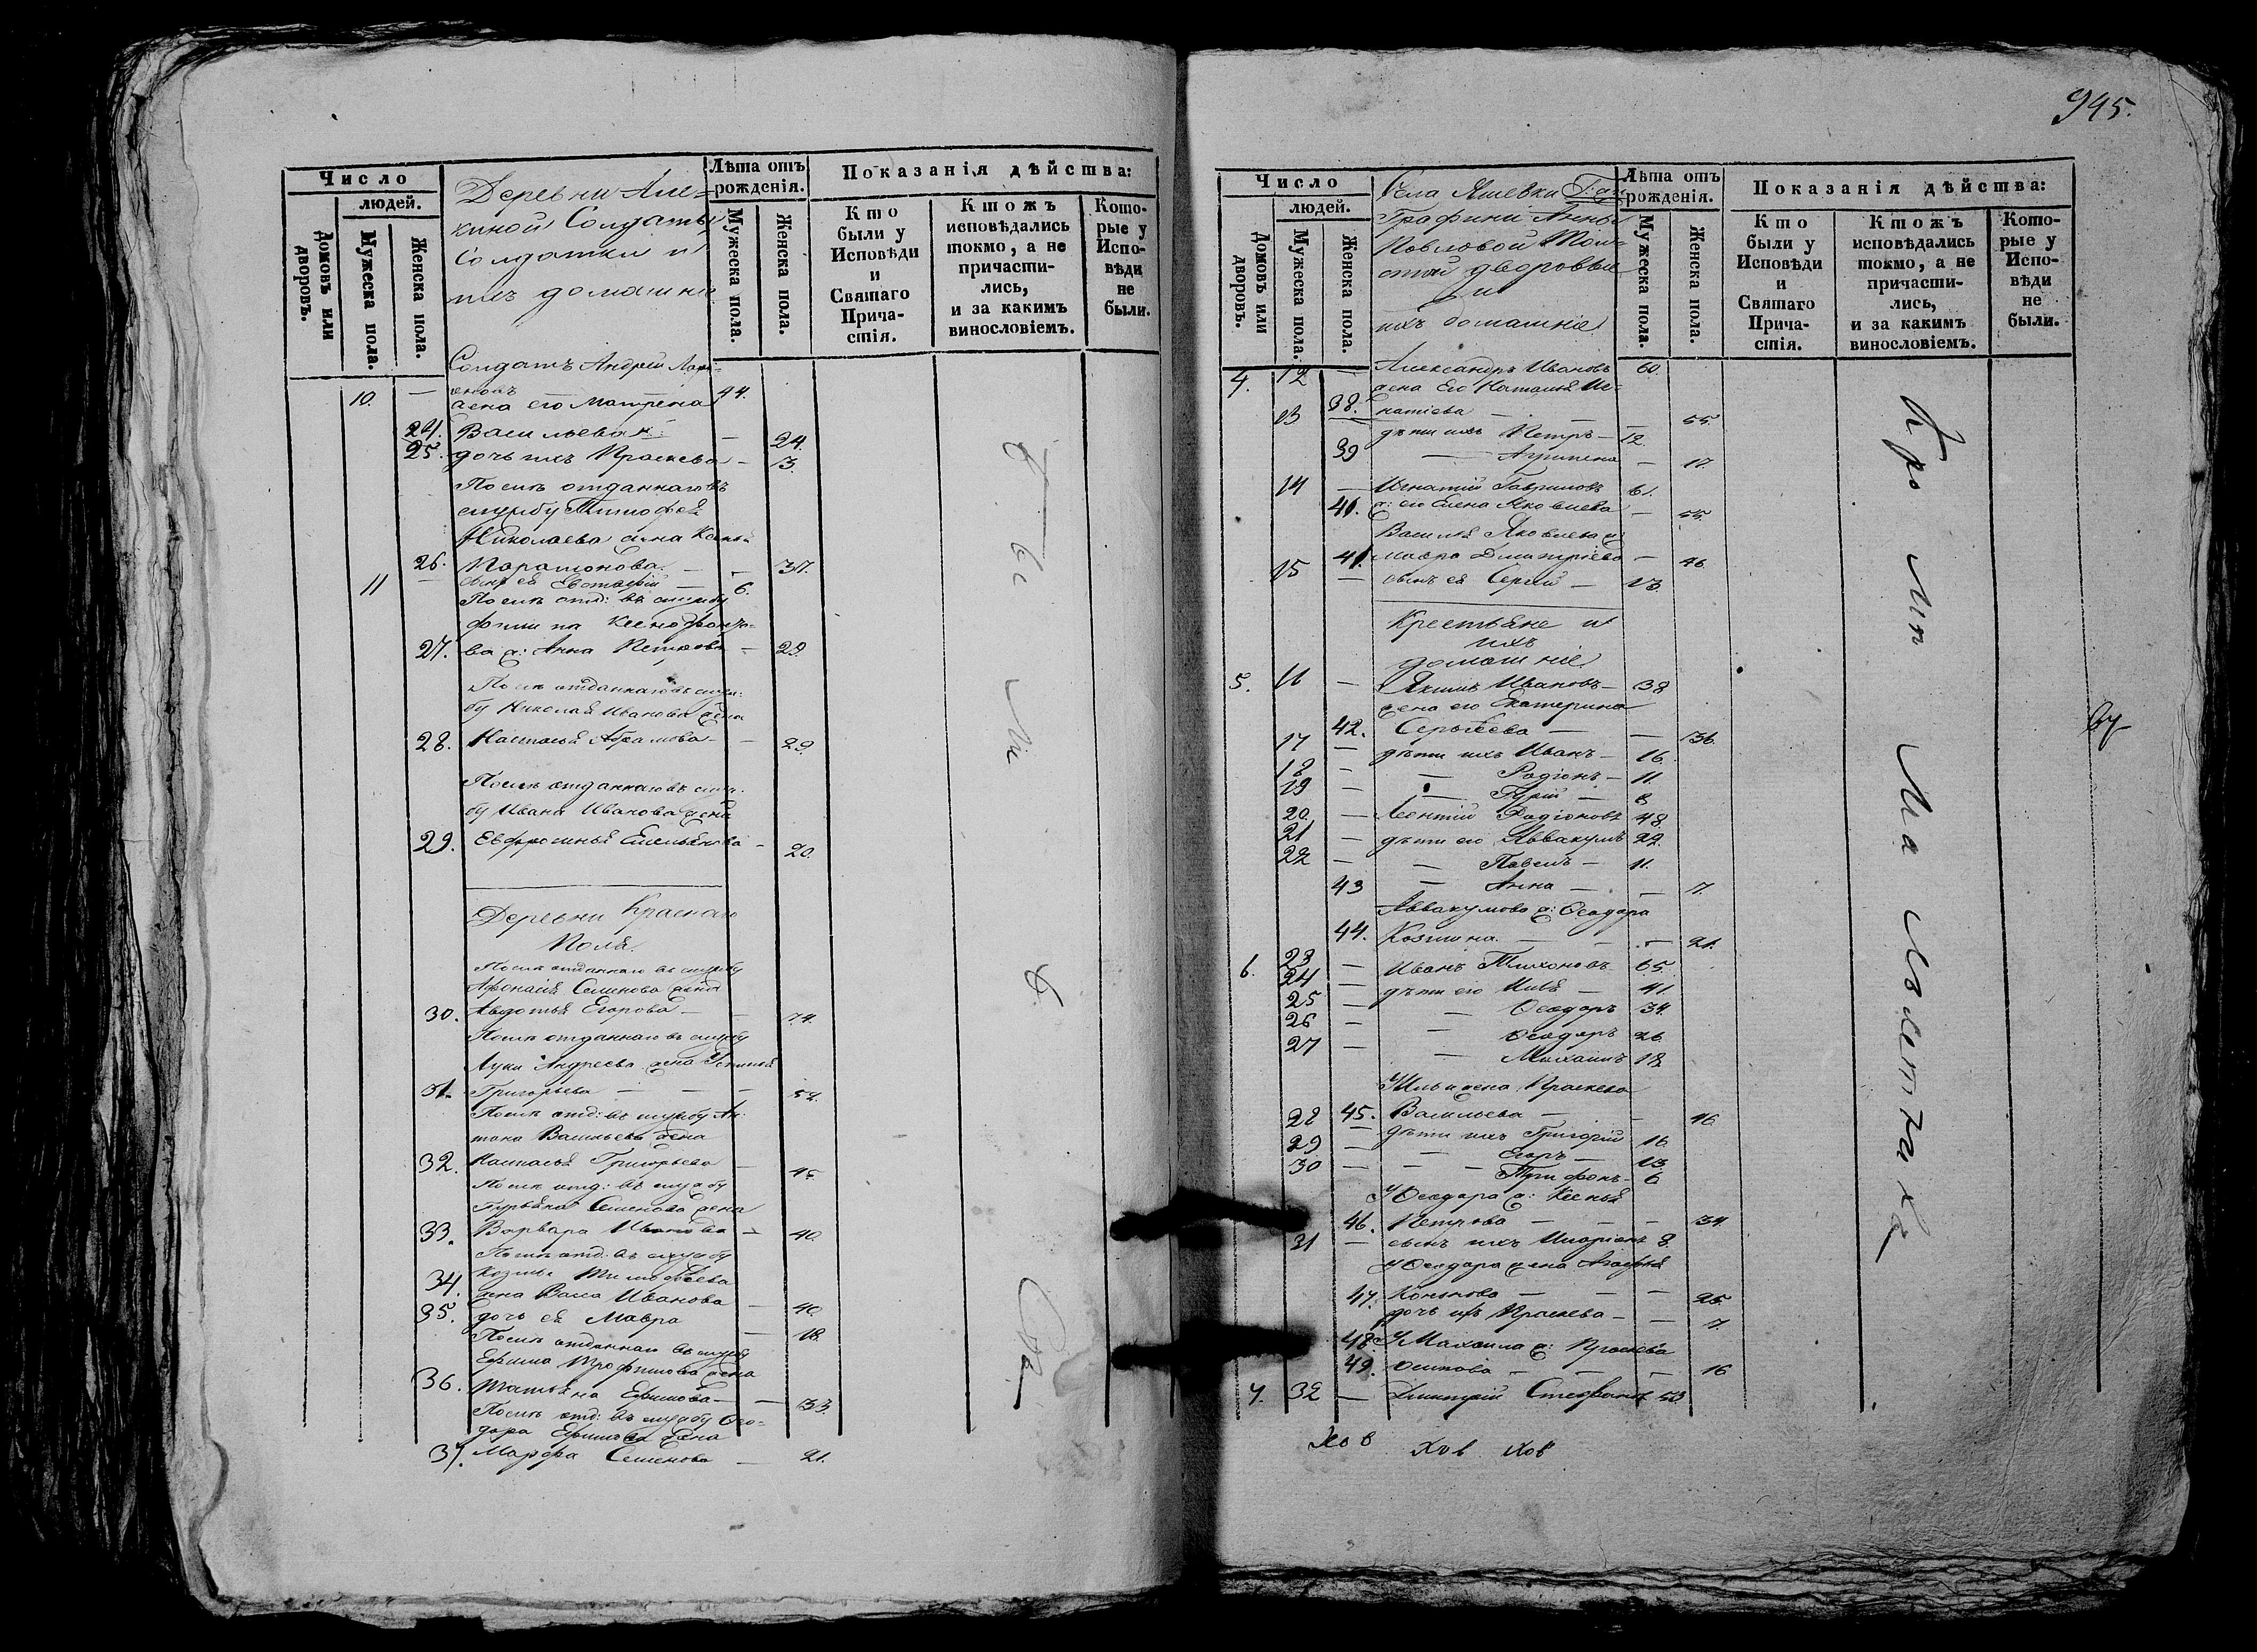 945.
Число
людей.
Домовъ или дворовъ.
Мужеска пола.
Женска пола.
Деревни Але-
киной Солдаты
Солдатки и
ихъ домашніе
Лѣта отъ рожденія.
Мужеска пола.
Женска пола.
Показанія дѣйства:
Кто были у Исповѣди и Святаго Прича-стія.
Ктожъ исповѣдались токмо, а не причасти-лись, и за какимъ винословіемъ.
Кото-рые у Испо-вѣди не были.
Солдатъ Андрей Лари-
10. — оновъ — 44.
жена его Матрена
24. Васильева — 24.
25. дочь ихъ Праскева — 3.
Послѣ отданнаго въ
службу Тимофея
Николаева жена Ксенья
26. Парамонова — — 37.
11 — сынъ ея — 6.
Послѣ отд: въ службу
Филипа Ксенофонто-
27. ва ж: Анна Петрова — 29.
Послѣ отданнаго въ служ-
бу Николая Иванова жена
28. Настасья Абрамова — — 29.
Послѣ отданнаго въ служ-
бу Ивана Иванова жена
29. Евфросинья Емельянова — 20.
Деревни Краснаго
Поля
Послѣ отданнаго въ службу
Афонасія Семенова жена
30. Авдотья Егорова — — 74.
Послѣ отданнаго въ службу
Луки Андреева жена Устинья
31. Григорьева — — — 52.
Послѣ отд: въ службу Ан-
тона Васильева жена
32. Настасья Григорьева — 45.
Послѣ отд: въ службу
Гурьяна Семенова жена
33. Варвара Иванова — 40.
Послѣ отд: въ службу
Козмы Тимофеева
34. жена Васса Иванова — 40.
35. дочь ея Мавра — 18.
Послѣ отданнаго въ службу
Ефима Трофимова жена
36. Татьяна Ефимова — — 33.
Послѣ отд: въ службу Ѳео-
дора Ефимова жена
37. Марфа Семенова — 21.
Число
людей.
Домовъ или дворовъ.
Мужеска пола.
Женска пола.
Села
Графини Анны
Павловой Тол-
стой дворовые
и
ихъ домашніе
Лѣта отъ рожденія.
Мужеска пола.
Женска пола.
Показанія дѣйства:
Кто были у Исповѣди и Святаго Прича-стія.
Ктожъ исповѣдались токмо, а не причасти-лись, и за какимъ винословіемъ.
Кото-рые у Испо-вѣди не были.
4. 12 — Александръ Ивановъ 60.
жена Его Наталья Иг-
38. натіева — — — 55.
13 — дѣти ихъ Петръ — 12.
39 — Агрипена — 17.
14 — Игнатій Гавриловъ 61.
40. ж: его Елена Яковлева — 55.
Василья Яковлева ж:
41. Мавра Дмитріева — 46.
15 — сынъ ея Сергѣй — 13.
Крестьяне и
ихъ
домашніе
5. 16 — Якимъ Ивановъ — 38
жена его Екатерина
42. Сергѣева — — 36.
17 — дѣти ихъ Иванъ — 16.
18 — — Родіонъ — 11.
19 — — Гурій — 8
20. — Леонтій Родіоновъ 48.
21 — дѣти его Аввакумъ 22.
22 — — Павелъ — 11.
43 — Анна — — 7.
Аввакумова ж: Ѳеодора
44. Козмина — — — 21.
6. 23 — Иванъ Тихоновъ 65.
24 — дѣти его Илья — 41.
25 — — Ѳеодоръ 34.
26 — — Ѳеодоръ 26.
27 — — Михаилъ 18
У Ильи жена Праскева
45. Васильева — — 46.
28 — дѣти ихъ Григорій 16.
29 — — Егоръ — 13
30 — — Трифонъ — 6
У Ѳеодора ж: Ксенья
46. Петрова — — — 34.
31 — сынъ ихъ Иларіонъ 8.
У Ѳеодора жена Агафья
47. Кононова — — — 25.
48 дочь ихъ Праскева — — 7.
У Михаила ж: Праскева
49. Осипова — — — 16
7. 32 — Дмитрій Степановъ 53